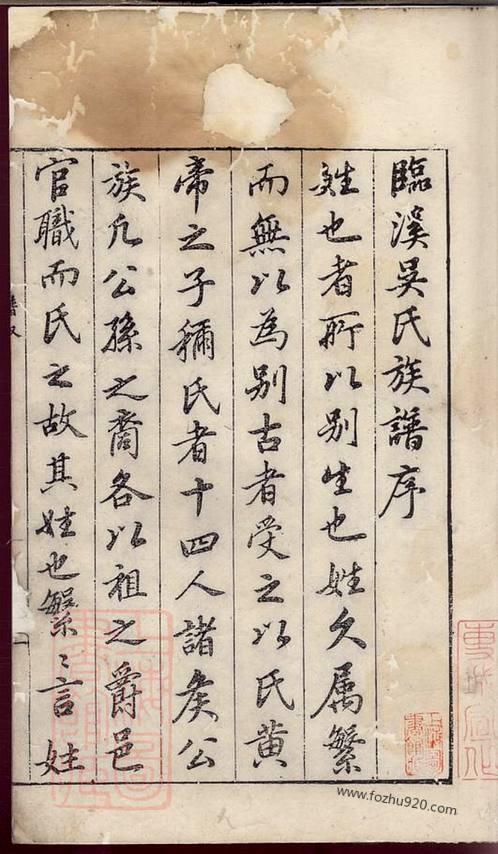 臨溪吳氏族譜序
姓也者所以別生也姓久属繁
而無以為别古者受之以氏黄
帝之子稱氏者十四人諸矦公
族凡公孫之裔各以祖之爵邑
官職而氏之故其姓也繁〻言姓
www.fozhu920.com